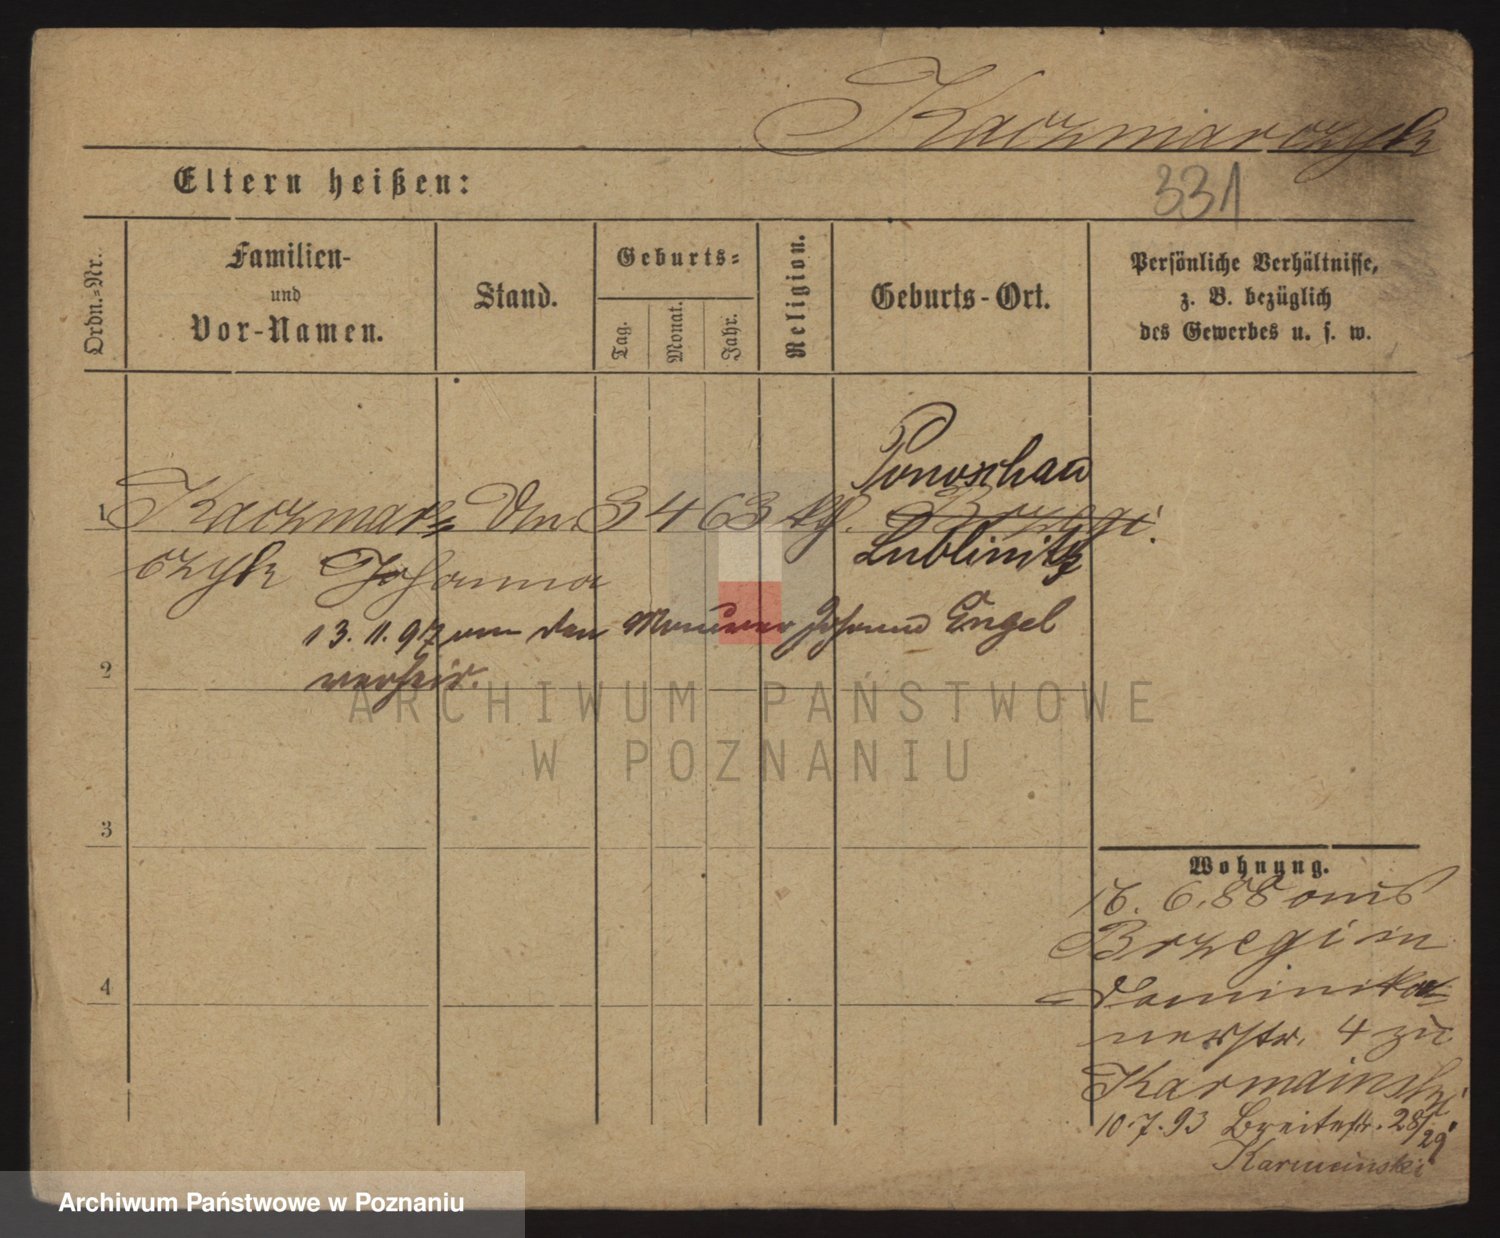 Kaczmarczyk
331
Eltern heißen:
Ordn.-Nr.
Familien-
und
Vor-Namen.
Stand.
Geburts-
Tag.
Monat.
Jahr.
Religion.
Geburts-Ort.
Persönliche Verhältnisse,
z. B. bezüglich
des Gewerbes u. s. w.
Ponoschau
1 Kaczmar- Dn. 3 4 63 kth. Brzegi.
czyk Johanna Lublinitz
13. 11. 97 an den Maurer Johann Engel
verheir.
2
3
4
Wohnung.
16. 6. 88 aus
Brzegi in
Dominika-
nerstr. 4 zu
Karmainski
10.7.93 Breitestr. 28/29
Karmeinski
ARCHIWUM PAŃSTWOWE
W POZNANIU
Archiwum Państwowe w Poznaniu